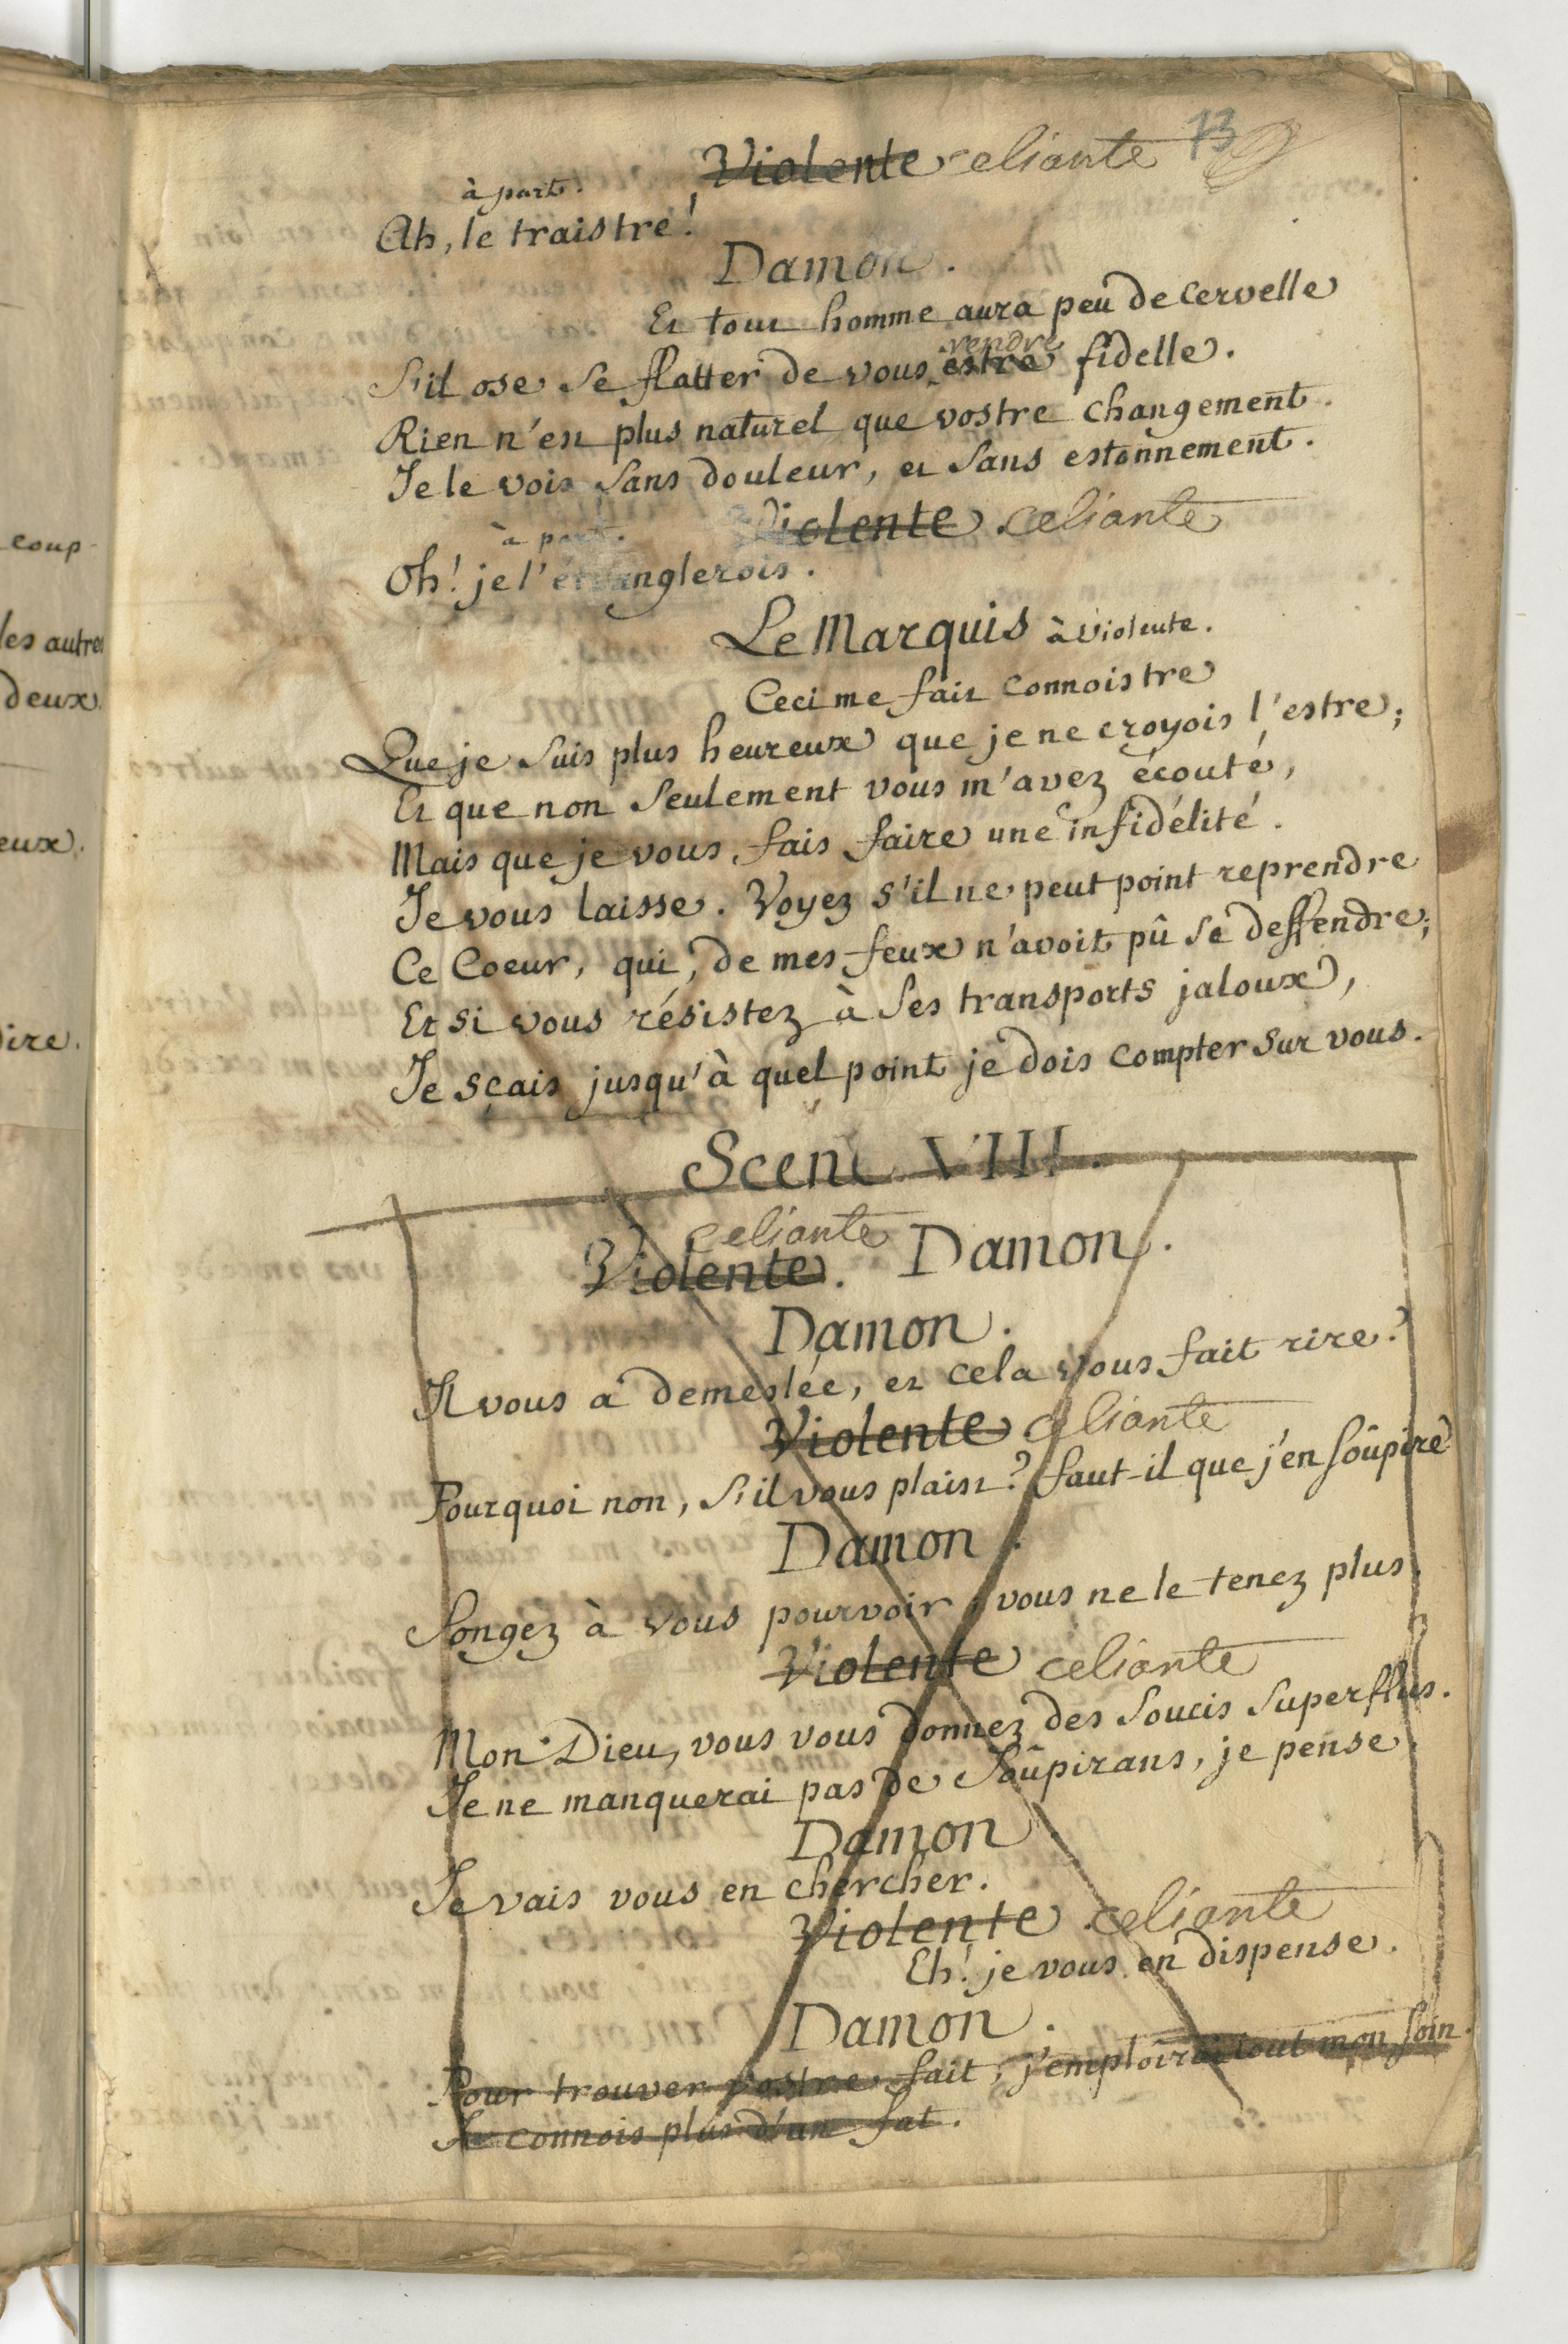 73
Violente celiante
à part.
Ah, le traistre!
Damon.
Et tout homme aura peu de cervelle
S'il ose se flatter de vous estre rendre fidelle.
Rien n'est plus naturel que vostre changement.
Je le vois sans douleur, et sans estonnement.
Violente celiante
à part.
Oh! je l'étranglerois.
Le Marquis à Violente.
Ceci me fait connoistre
Que je suis plus heureux que je ne croyois l'estre;
Et que non seulement vous m'avez écouté,
Mais que je vous fais faire une infidélité.
Je vous laisse. Voyez s'il ne peut point reprendre
Ce Coeur, qui, de mes feux n'avoit pû se deffendre;
Et si vous résistez à ses transports jaloux,
Je sçais jusqu'à quel point je dois compter sur vous.
Scene VIII.
celiante
Violente. Damon.
Damon.
Il vous a demeslée, et cela vous fait rire?
Violente celiante
Pourquoi non, s'il vous plaist? faut-il que j'en soûpire
Damon.
Songez à vous pourvoir, vous ne le tenez plus.
Violente celiante
Mon Dieu, vous vous donnez des soucis superflus.
Je ne manquerai pas de soûpirans, je pense.
Damon
Je vais vous en chercher.
Violente celiante
Eh! je vous en dispense.
Damon.
Pour trouver vostre fait, j'emploirai tout mon soin.
Je connois plus d'un fat.
coup
les autres
deux.
eux.
dire.